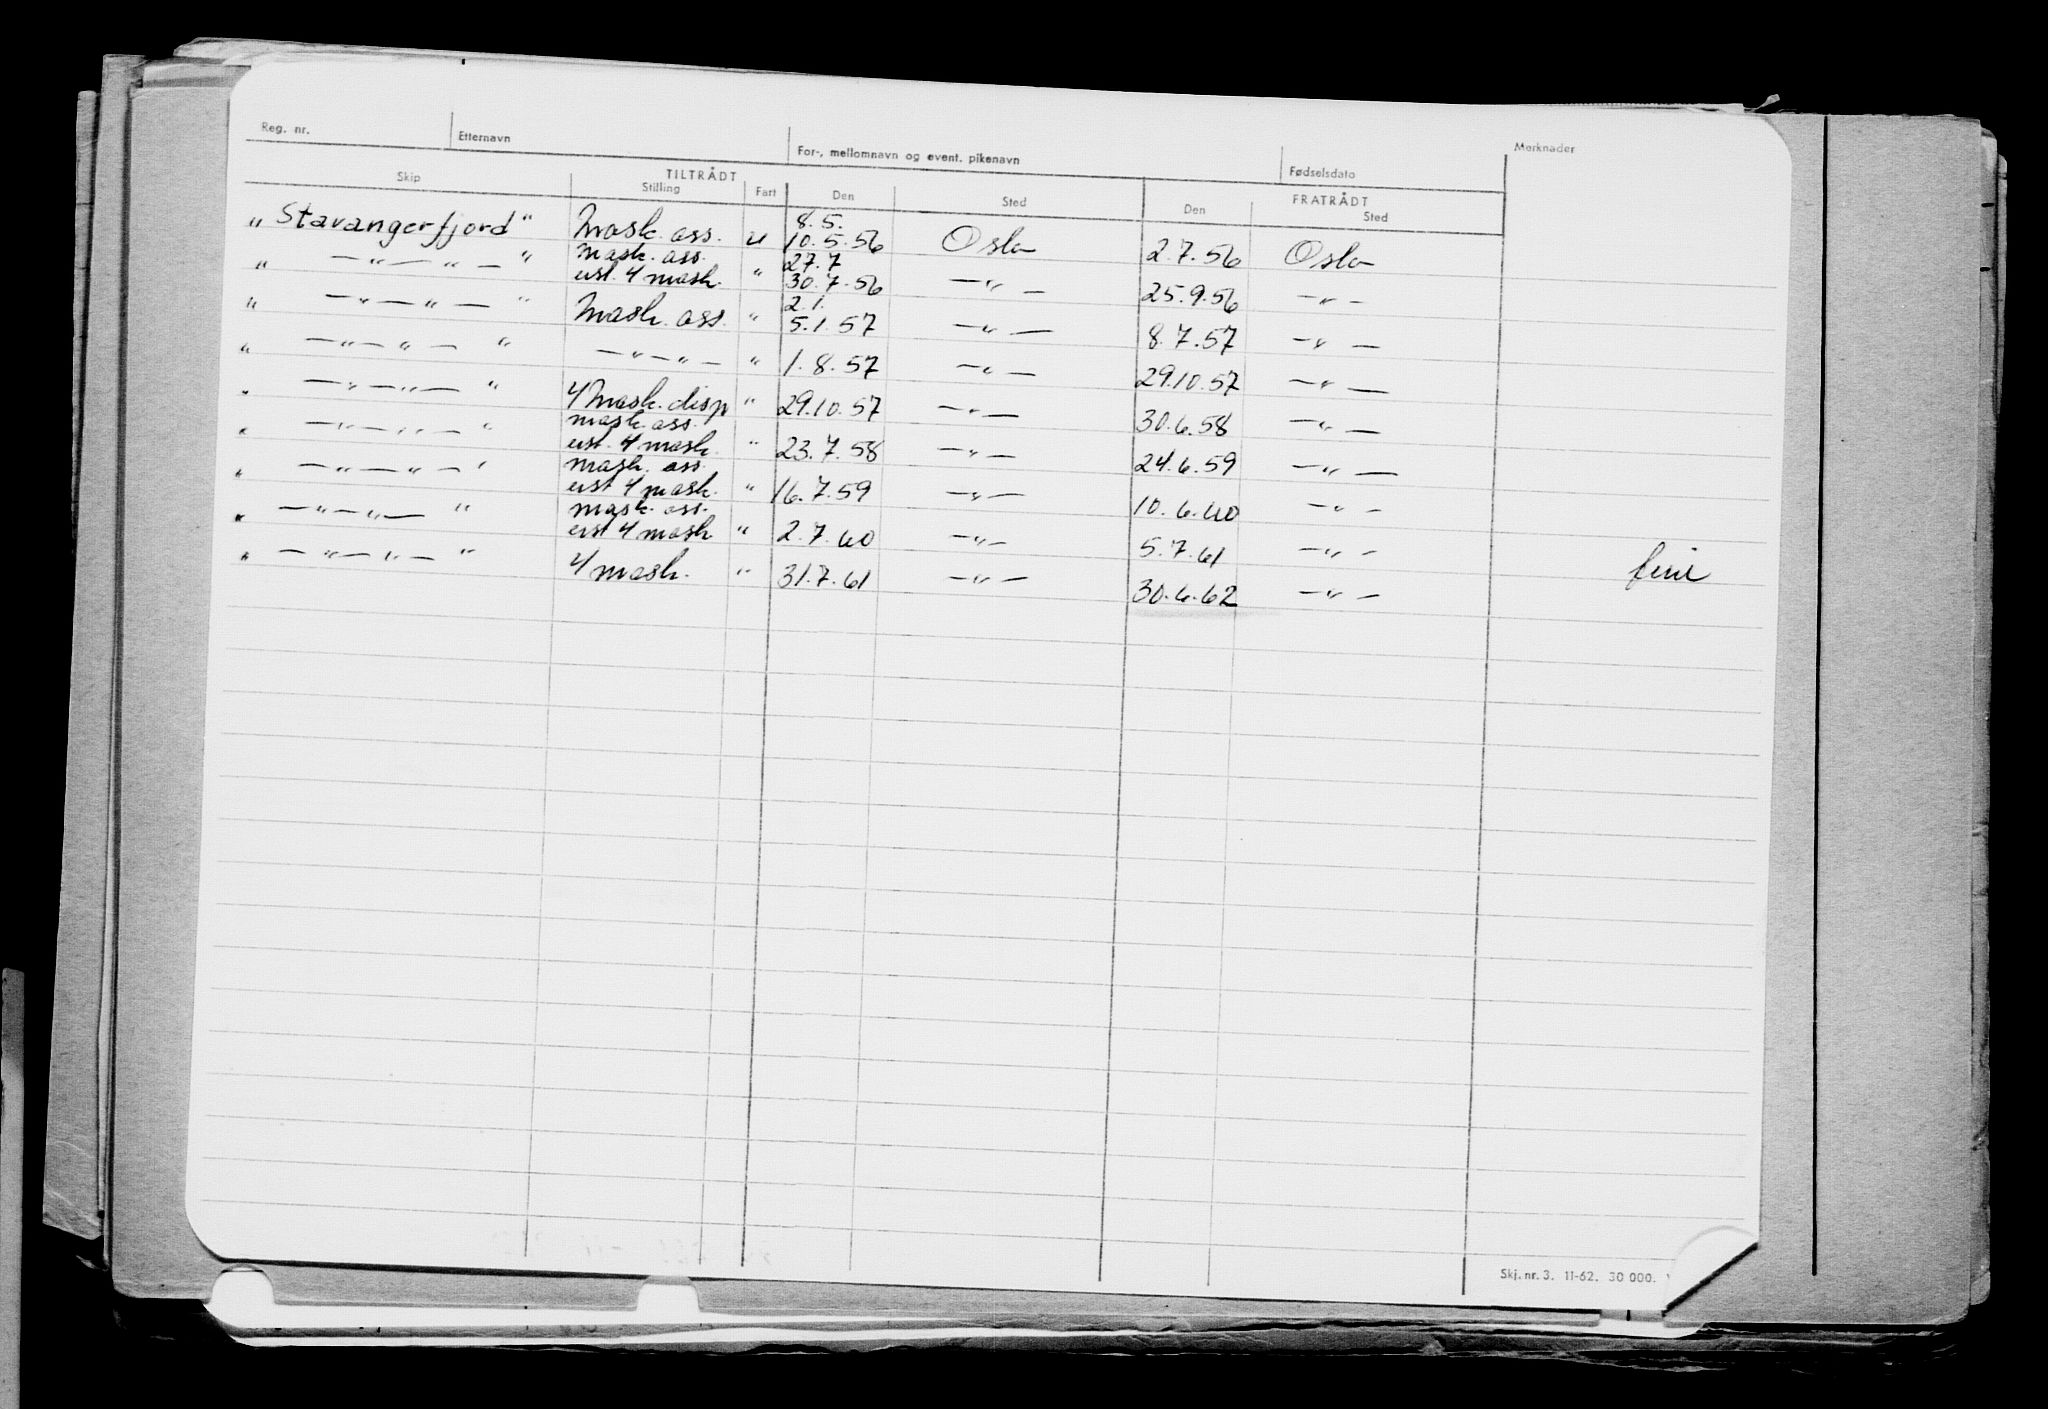 Reg. nr. Etternavn For-, mellomnavn og event. pikenavn Fødselsdato Merknader
TILTRÅDT FRATRÅDT
Skip Stilling Fart Den Sted Den Sted
8.5.
„ Stavangerfjord" Mask. ass. u 10.5.56 Oslo 2.7.56 Oslo
mask. ass. 27.7
„ — " — " — " eist. 4 mask. " 30.7.56 — " — 25.9.56 — " —
2.1.
" — " — " — " Mask. ass. " 5.1.57 — " — 8.7.57 — " —
" — " — " — " — " — " — " 1.8.57 — " — 29.10.57 — " —
" — " — " — " 4 Mask. disp " 29.10.57 — " — 30.6.58 — " —
mask. ass.
" — " — " — " eist. 4 mask. " 23.7.58 — " — 24.6.59 — " —
mask. ass.
" — " — " — " eist 4 mask. " 16.7.59 — " — 10.6.60 — " —
mask. ass.
" — " — " — " eist 4 mask " 2.7.60 — " — 5.7.61 — " —
" — " — " — " 4 mask. " 31.7.61 — " — 30.6.62 — " — ferie
Skj. nr. 3. 11-62. 30 000.